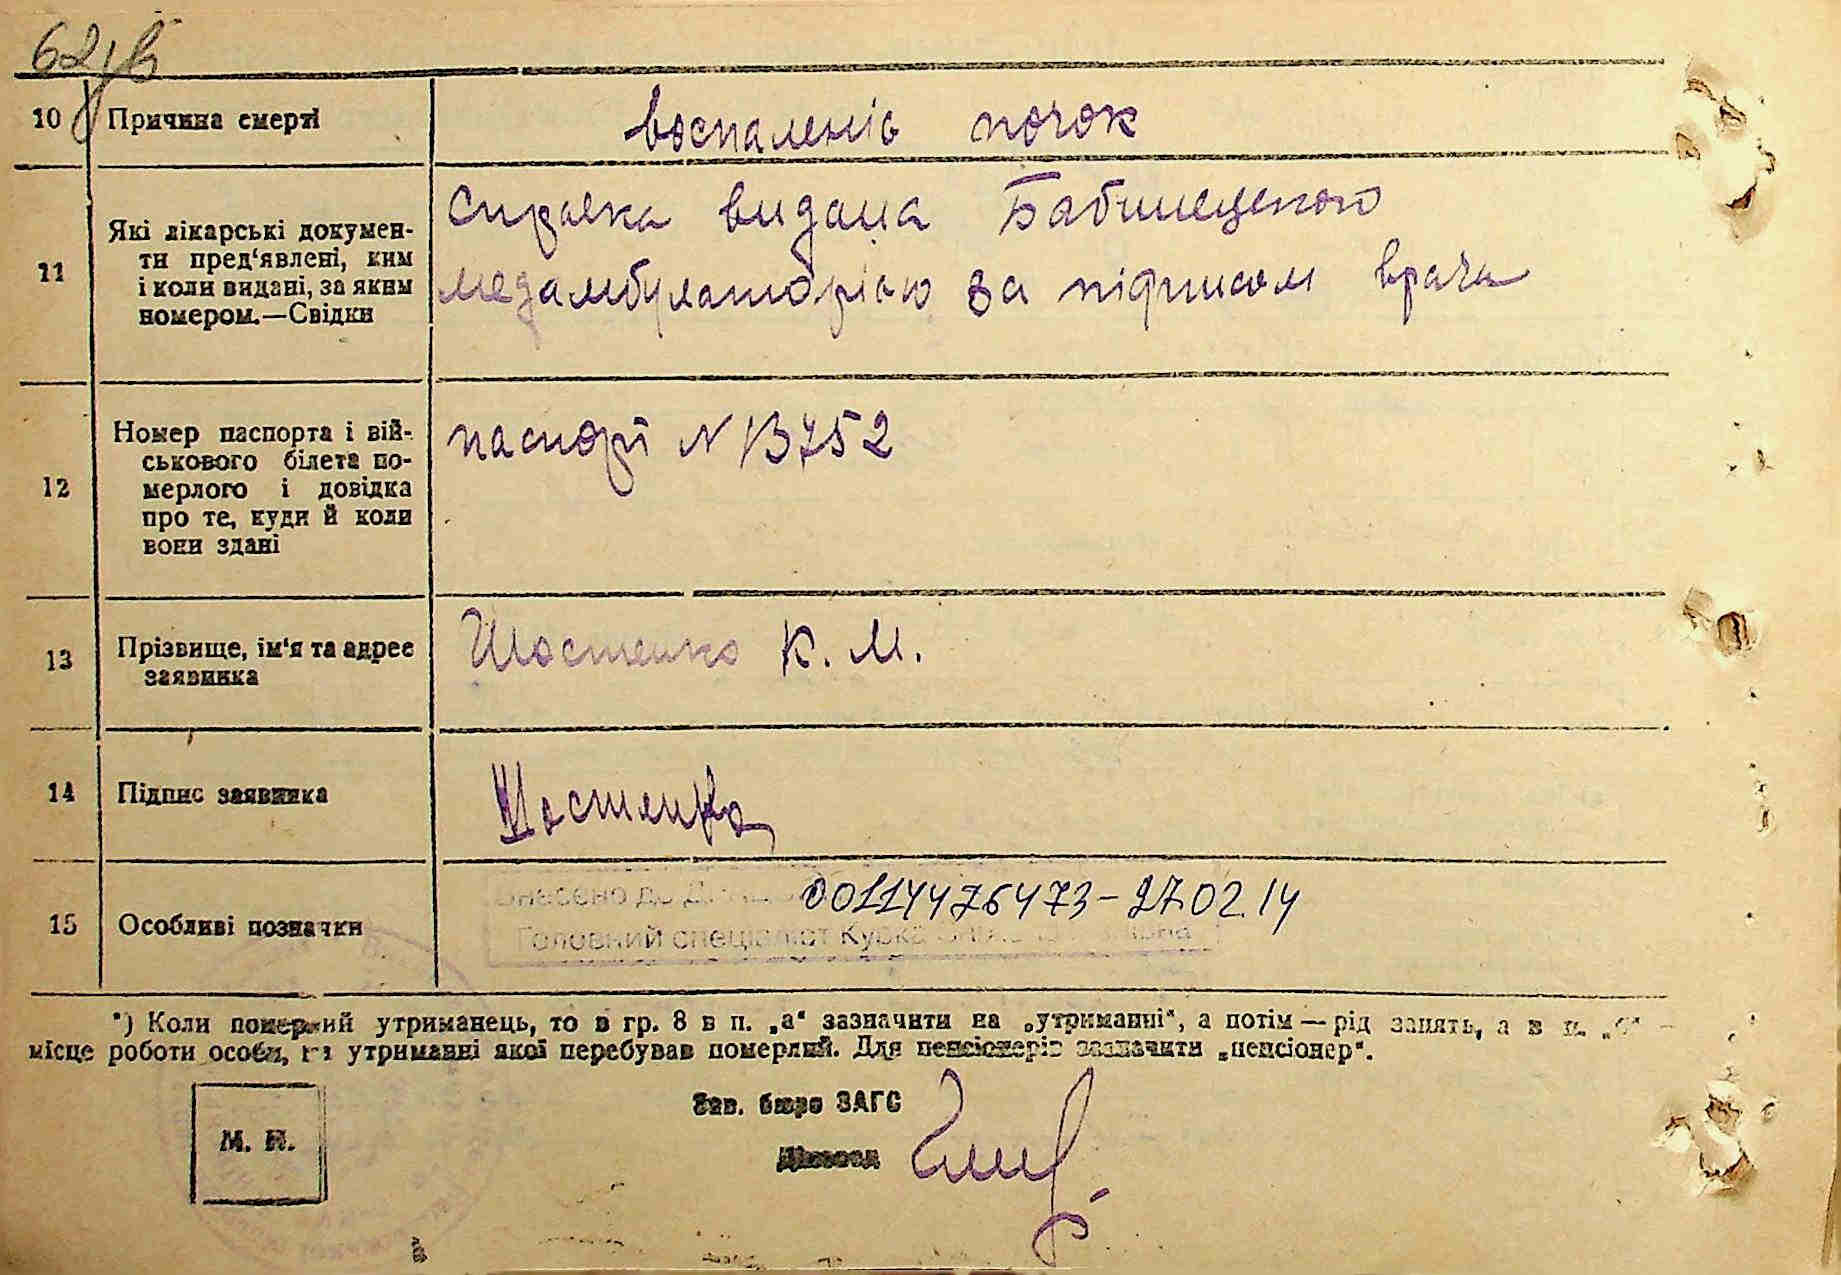 62 / в
10 Причина смерті
воспаленіє почок
11 Які лікарські докумен-
ти пред‘явлені, ким
і коли видані, за яким
номером.—Свідки
Справка видана Бабинецкою
медамбулаторією за підписом врача
12 Номер паспорта і вій-
ськового білета по-
мерлого і довідка
про те, куди й коли
вони здані
паспорт N 13752
13 Прізвище, ім‘я та адрес
заявника
Шостенко К. М.
14 Підпис заявника
Шостенко
15 Особливі позначки
Внесено до
00114476473-27.02.14
Головний спеціаліст Курка
*) Коли померлий утриманець, то в гр. 8 в п. „а“ зазначити на „утриманні“, а потім — рід занять, а в п. „б“ —
місце роботи особи, на утриманні якої перебував померлий. Для пенсіонерів зазначити „пенсіонер“.
Зав. бюро ЗАГС
М. П.
Діловод